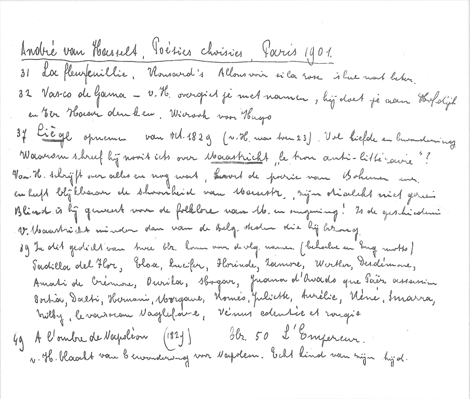 André van Hasselt, Poésies choisies, Paris 1901.
31 La fleur feuillie. Ronsard's Allons voir si la rose is hier
32 Vasco de Gama – v. H. overgiet je met namen, hij doet je aan
en Da Costa denken. voor Hugo
37 Liège opnemen van 1829 (v. H. was toen 23). Vol liefde en bewondering
Waarom schreef hij nooit iets over Maastricht "le trou anti-littéraire"?
Van H. schrijft over alles en nog wat, de poëzie van Bohemen
en heeft blijkbaar de schoonheid van zijn dialect niet gezien
Blind is hij geweest voor de folklore van M. en omgeving! Is de geschiedenis
v. Maastricht minder dan van de Belg. steden die hij
39 In dit gedicht van twee blz. komen voor de vlg. namen (behalve en Eng. motto)
Padilla del Flor, Eloa, Lucifer, Florinde, Zamore, Werther, Desdémone,
Amati de Crémone, Ourika, Juana
Portia, Dalti, Hernani, Morgane, Roméo, Juliette, Aurélie, Réné, Smarra,
Trilby, le vaisseau Vénus et
49 A l'ombre de Napoléon (1829) Blz. 50 L'Empereur.
v. H. blaakt van bewondering voor Napoleon. Echt kind van zijn tijd.